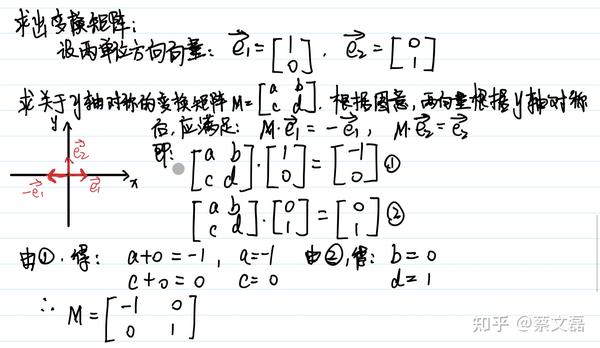 求出变换矩阵:
设两单位方向向量: e₁⃗ = [1 0], e₂⃗ = [0 1]
求关于y轴对称的变换矩阵 M = [a b c d]. 根据图意, 两向量根据y轴对称
后, 应满足: M·e₁⃗ = -e₁⃗, M·e₂⃗ = e₂⃗
即: [a b c d]·[1 0] = [-1 0] ①
[a b c d]·[0 1] = [0 1] ②
y
e₂⃗
-e₁⃗ e₁⃗ x
由①, 得: a+0=-1, a=-1 由②, 得: b=0
c+0=0 c=0 d=1
∴ M = [-1 0 0 1]
知乎 @蔡文磊